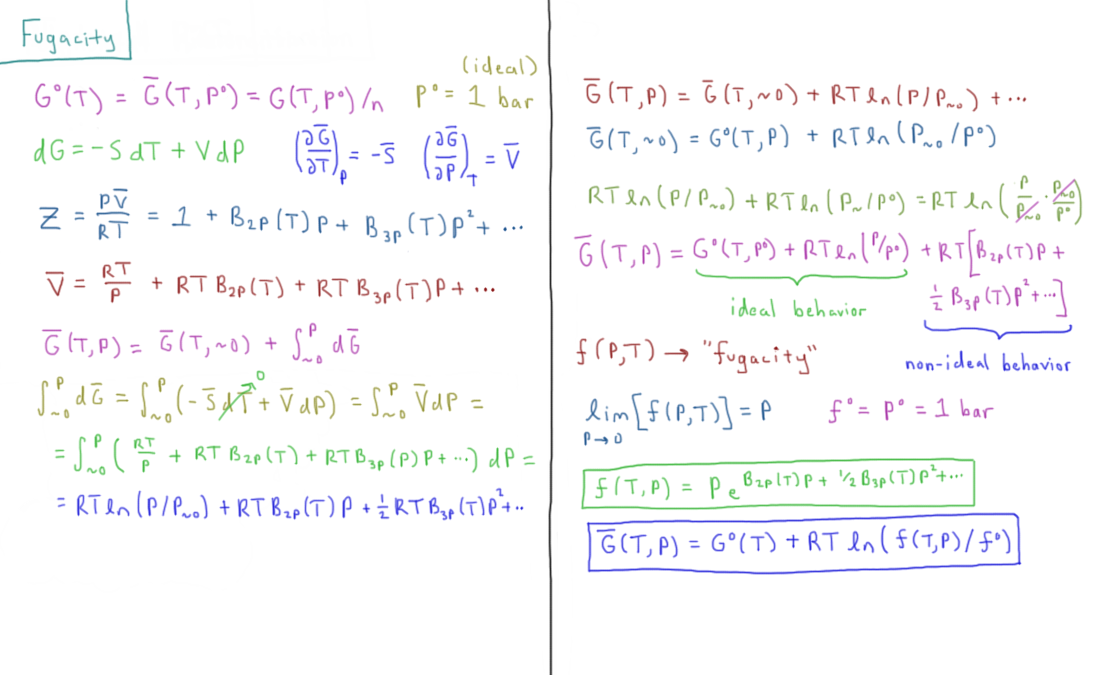 Fugacity
(ideal)
G°(T) = G̅(T,P°) = G(T,P°)/n   P° = 1 bar
dG = -S dT + V dP   (∂G̅/∂T)_P = -S̅   (∂G̅/∂P)_T = V̅
Z = PV̅/RT = 1 + B₂P(T)P + B₃P(T)P² + ...
V̅ = RT/P + RT B₂P(T) + RT B₃P(T)P + ...
G̅(T,P) = G̅(T,~0) + ∫_~0^P dG̅
∫_~0^P dG̅ = ∫_~0^P (-S̅dT + V̅dP) = ∫_~0^P V̅dP =
0
= ∫_~0^P (RT/P + RT B₂P(T) + RT B₃P(P)P + ...) dP =
= RT ln(P/P~0) + RT B₂P(T)P + ½ RT B₃P(T)P² + ..
G̅(T,P) = G̅(T,~0) + RT ln(P/P~0) + ...
G̅(T,~0) = G°(T,P) + RT ln(P~0/P°)
RT ln(P/P~0) + RT ln(P~/P°) = RT ln(P/P~0 · P~0/P°)
G̅(T,P) = G°(T,P°) + RT ln(P/P°) + RT[B₂P(T)P +
½ B₃P(T)P² + ...]
ideal behavior
non-ideal behavior
f(P,T) → "fugacity"
lim_P→0 [f(P,T)] = P   f° = P° = 1 bar
f(T,P) = P e^(B₂P(T)P + ½ B₃P(T)P² + ...)
G̅(T,P) = G°(T) + RT ln(f(T,P)/f°)